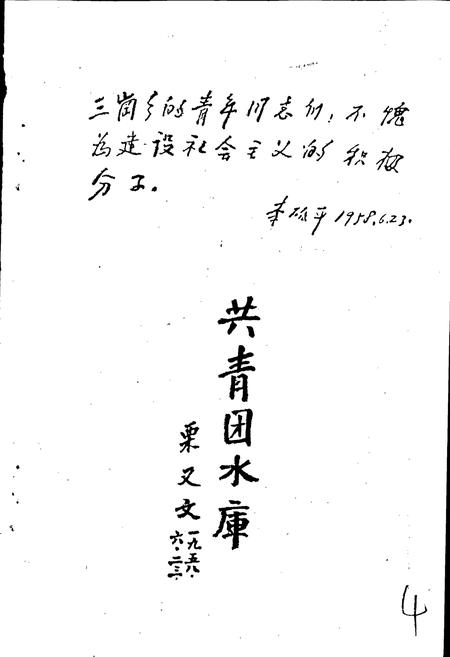 三岗乡的青年同志们，不愧
为建设社会主义的积极
分子。
李砥平 1958.6.23.
共青团水庫
栗又文
一九五八·
六·二三·
4